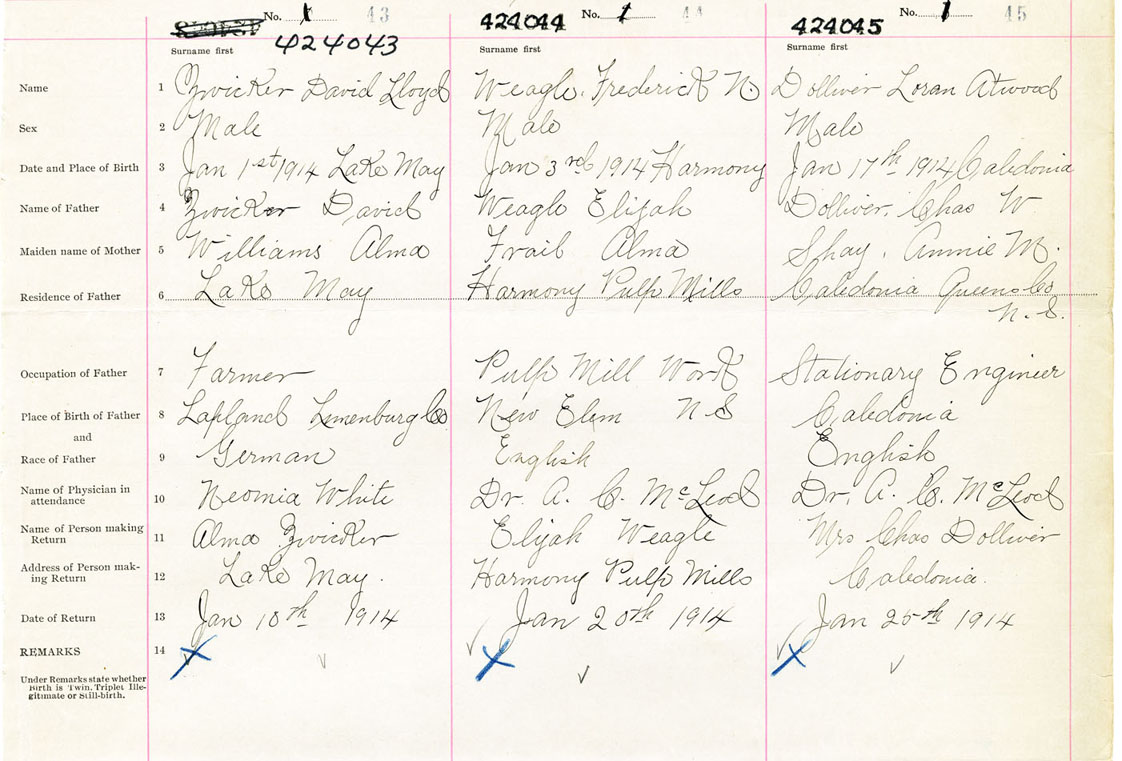 No. 1 43 424044 No. 1 44 424045 No. 1 45
424043
Surname first Surname first Surname first
Name 1 Zwicker David Lloyd Weagle, Frederick N. Dolliver Loran Atwood
Sex 2 Male Male Male
Date and Place of Birth 3 Jan 1st 1914 Lake May Jan 3rd 1914 Harmony Jan 17th 1914 Caledonia
Name of Father 4 Zwicker David Weagle Elijah Dolliver, Chas W
Maiden name of Mother 5 Williams Alma Frail Alma Shay, Annie M.
Residence of Father 6 Lake May Harmony Pulp Mills Caledonia Queens Co
N.S.
Occupation of Father 7 Farmer Pulp Mill Work Stationary Engineer
Place of Birth of Father 8 Lapland Lunenburg Co New Elem N S Caledonia
and
Race of Father 9 German English English
Name of Physician in
attendance 10 Neomia White Dr. A. C. McLeod Dr. A. C. McLeod
Name of Person making
Return 11 Alma Zwicker Elijah Weagle Mrs Chas Dolliver
Address of Person mak-
ing Return 12 Lake May. Harmony Pulp Mills Caledonia.
Date of Return 13 Jan 10th 1914 Jan 20th 1914 Jan 25th 1914
REMARKS 14
Under Remarks state whether
Birth is Twin, Triplet Ille-
gitimate or Still-birth.